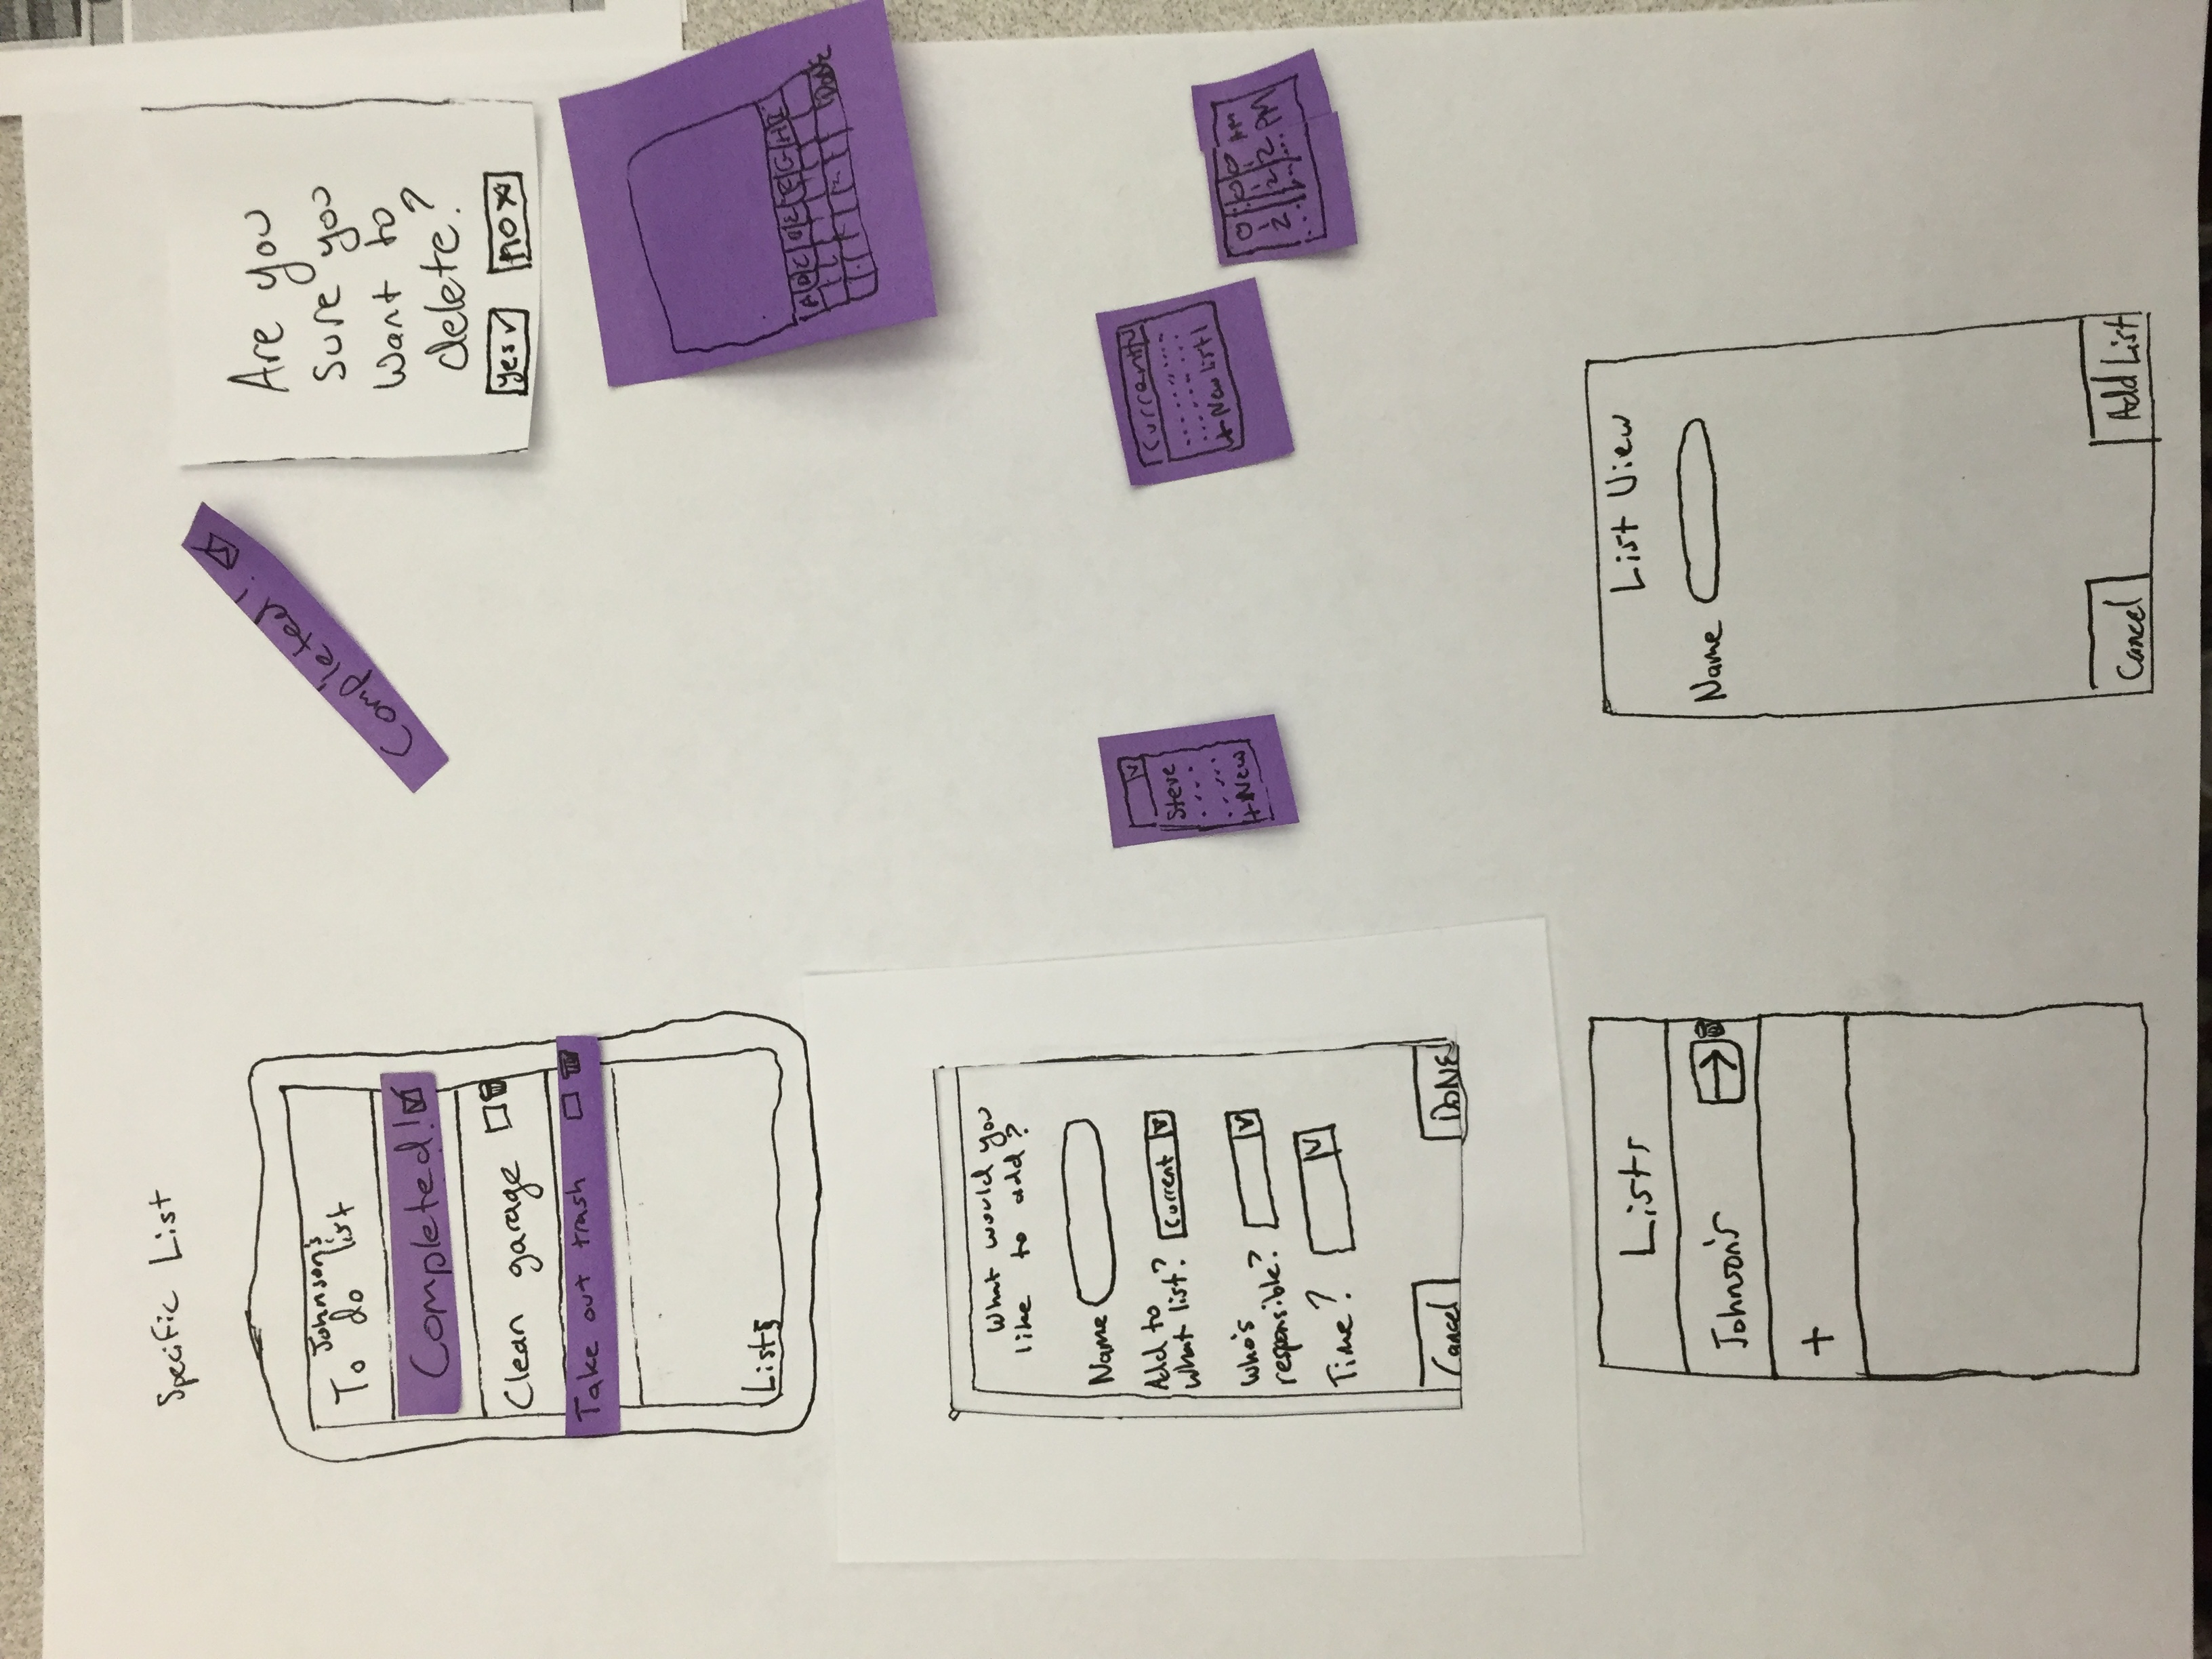 Specific List
Johnson's
To do list
Completed!
Clean garage
Take out trash
Lists
Completed!
Are you
sure you
want to
delete?
yes
no
DONE
What would you
like to add?
Name
Add to
what list? Current
Who's
responsible?
Time?
Cancel
DONE
Steve
+New
Current
+New list
0:00 AM
1 1 1
2 2 2 PM
Lists
Johnson's
+
List View
Name
Cancel
Add List